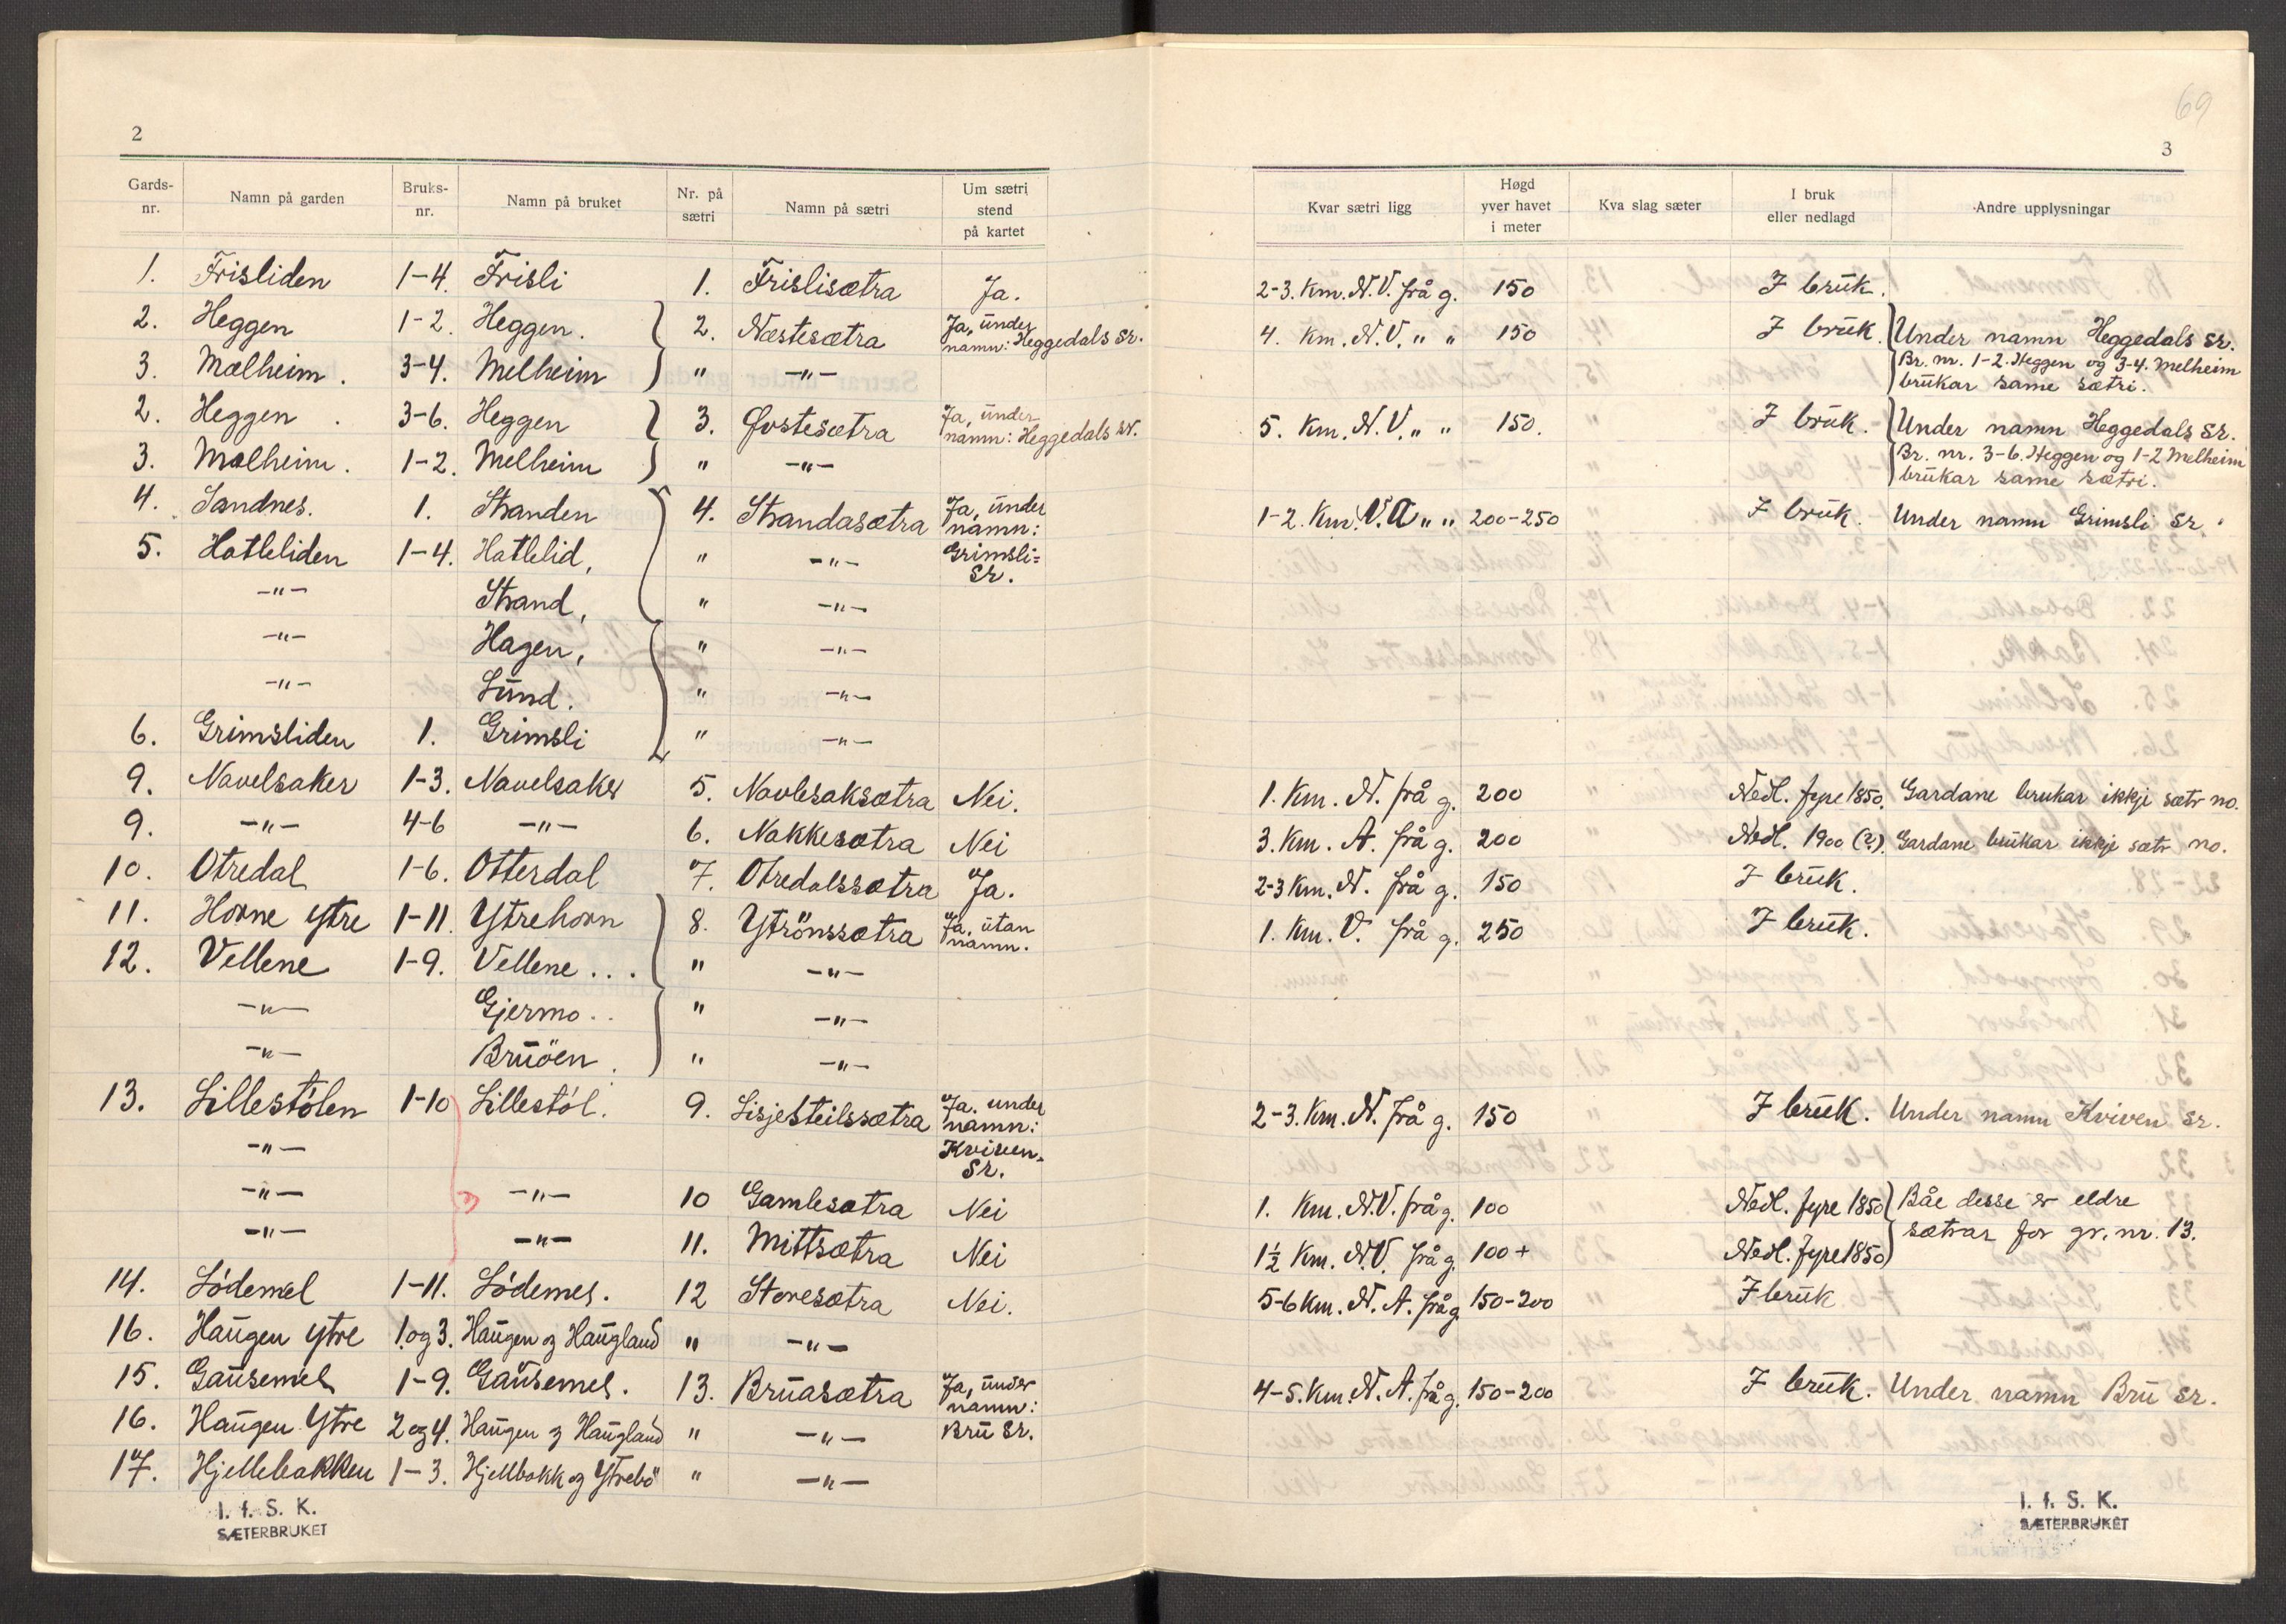 2
Gards-nr. Namn på garden Bruks-nr. Namn på bruket Nr. på sætri Namn på sætri Um sætri stend på kartet
1. Frisliden 1-4. Frisli 1. Frislisætra Ja.
2. Heggen 1-2. Heggen. 2. Næstesætra Ja, under namn: Heggedals sr.
3. Mælheim. 3-4. Melheim " -"-
2. Heggen. 3-6. Heggen 3. Øvstesætra Ja, under namn: Heggedals sr.
3. Mælheim. 1-2. Melheim " -"-
4. Sandnes. 1. Stranden 4. Strandasætra Ja, under namn: Grimsli= sr.
5. Hatleliden 1-4. Hatlelid, " -"-
-"- Strand, " -"-
-"- Hagen, " -"-
-"- Lund. " -"-
6. Grimsliden 1. Grimsli " -"-
9. Navelsaker 1-3. Navelsaker 5. Navlesaksætra Nei.
9. -"- 4-6 -"- 6. Nakkesætra Nei
10. Otredal 1-6. Otterdal 7. Otredalssætra Ja.
11. Horne ytre 1-11. Ytrehorn 8. Ytrönssætra Ja, utan namn.
12. Vellene 1-9. Vellene... " -"-
-"- Gjermo.. " -"-
-"- Bruöen. " -"-
13. Lillestölen 1-10 Lillestöl. 9. Lisjesteilssætra Ja. under namn: Kviven. sr.
-"-
-"- -"- 10 Gamlesætra Nei
-"- -"- 11. Mittsætra Nei
14. Lödemel 1-11. Lödemel. 12 Storesætra Nei.
16. Haugen ytre 1. og 3. Haugen og Haugland " -"-
15. Gausemel 1-9. Gausemel. 13. Bruasætra Ja, under namn: Bru sr.
16. Haugen Ytre 2 og 4. Haugen og Haugland " -"-
17. Hjellebakken 1-3. Hjellbakk og Ytrebö " -"-
I. f. S. K.
SÆTERBRUKET
69
3
Kvar sætri ligg Høgd yver havet i meter Kva slag sæter I bruk eller nedlagd Andre upplysningar
2-3. Km. N.V. frå g. 150 I bruk.
4. Km. N.V. " " 150 I bruk. Under namn Heggedals sr.
Br. nr. 1-2. Heggen og 3-4. Melheim
brukar same sætri.
5. Km. N.V. " " 150. I bruk. Under namn Heggedals sr.
Br. nr. 3-6. Heggen og 1-2 Melheim
brukar same sætri.
1-2. Km. V.A " " 200-250 I bruk. Under namn Grimsli sr.
1. Km. N. frå g. 200 Nedl. fyre 1850. Gardane brukar ikkje sætr no.
3. Km. A. frå g. 200 Nedl. 1900 (?). Gardane brukar ikkje sætr no.
2-3 Km. N. frå g. 150 I bruk.
1. Km. V. frå g. 250 I bruk.
2-3. Km. N. frå g. 150 I bruk. Under namn Kviven sr.
1. Km. N.V. frå g. 100 Nedl. fyre 1850 Båe desse er eldre
sætrar for gr. nr. 13.
1½ Km. N.V. frå g. 100+ Nedl. fyre 1850
5-6 Km. N.A. frå g. 150-200 I bruk
4-5. Km. N.A. frå g. 150-200 I bruk. Under namn Bru sr.
I. f. S. K.
SÆTERBRUKET